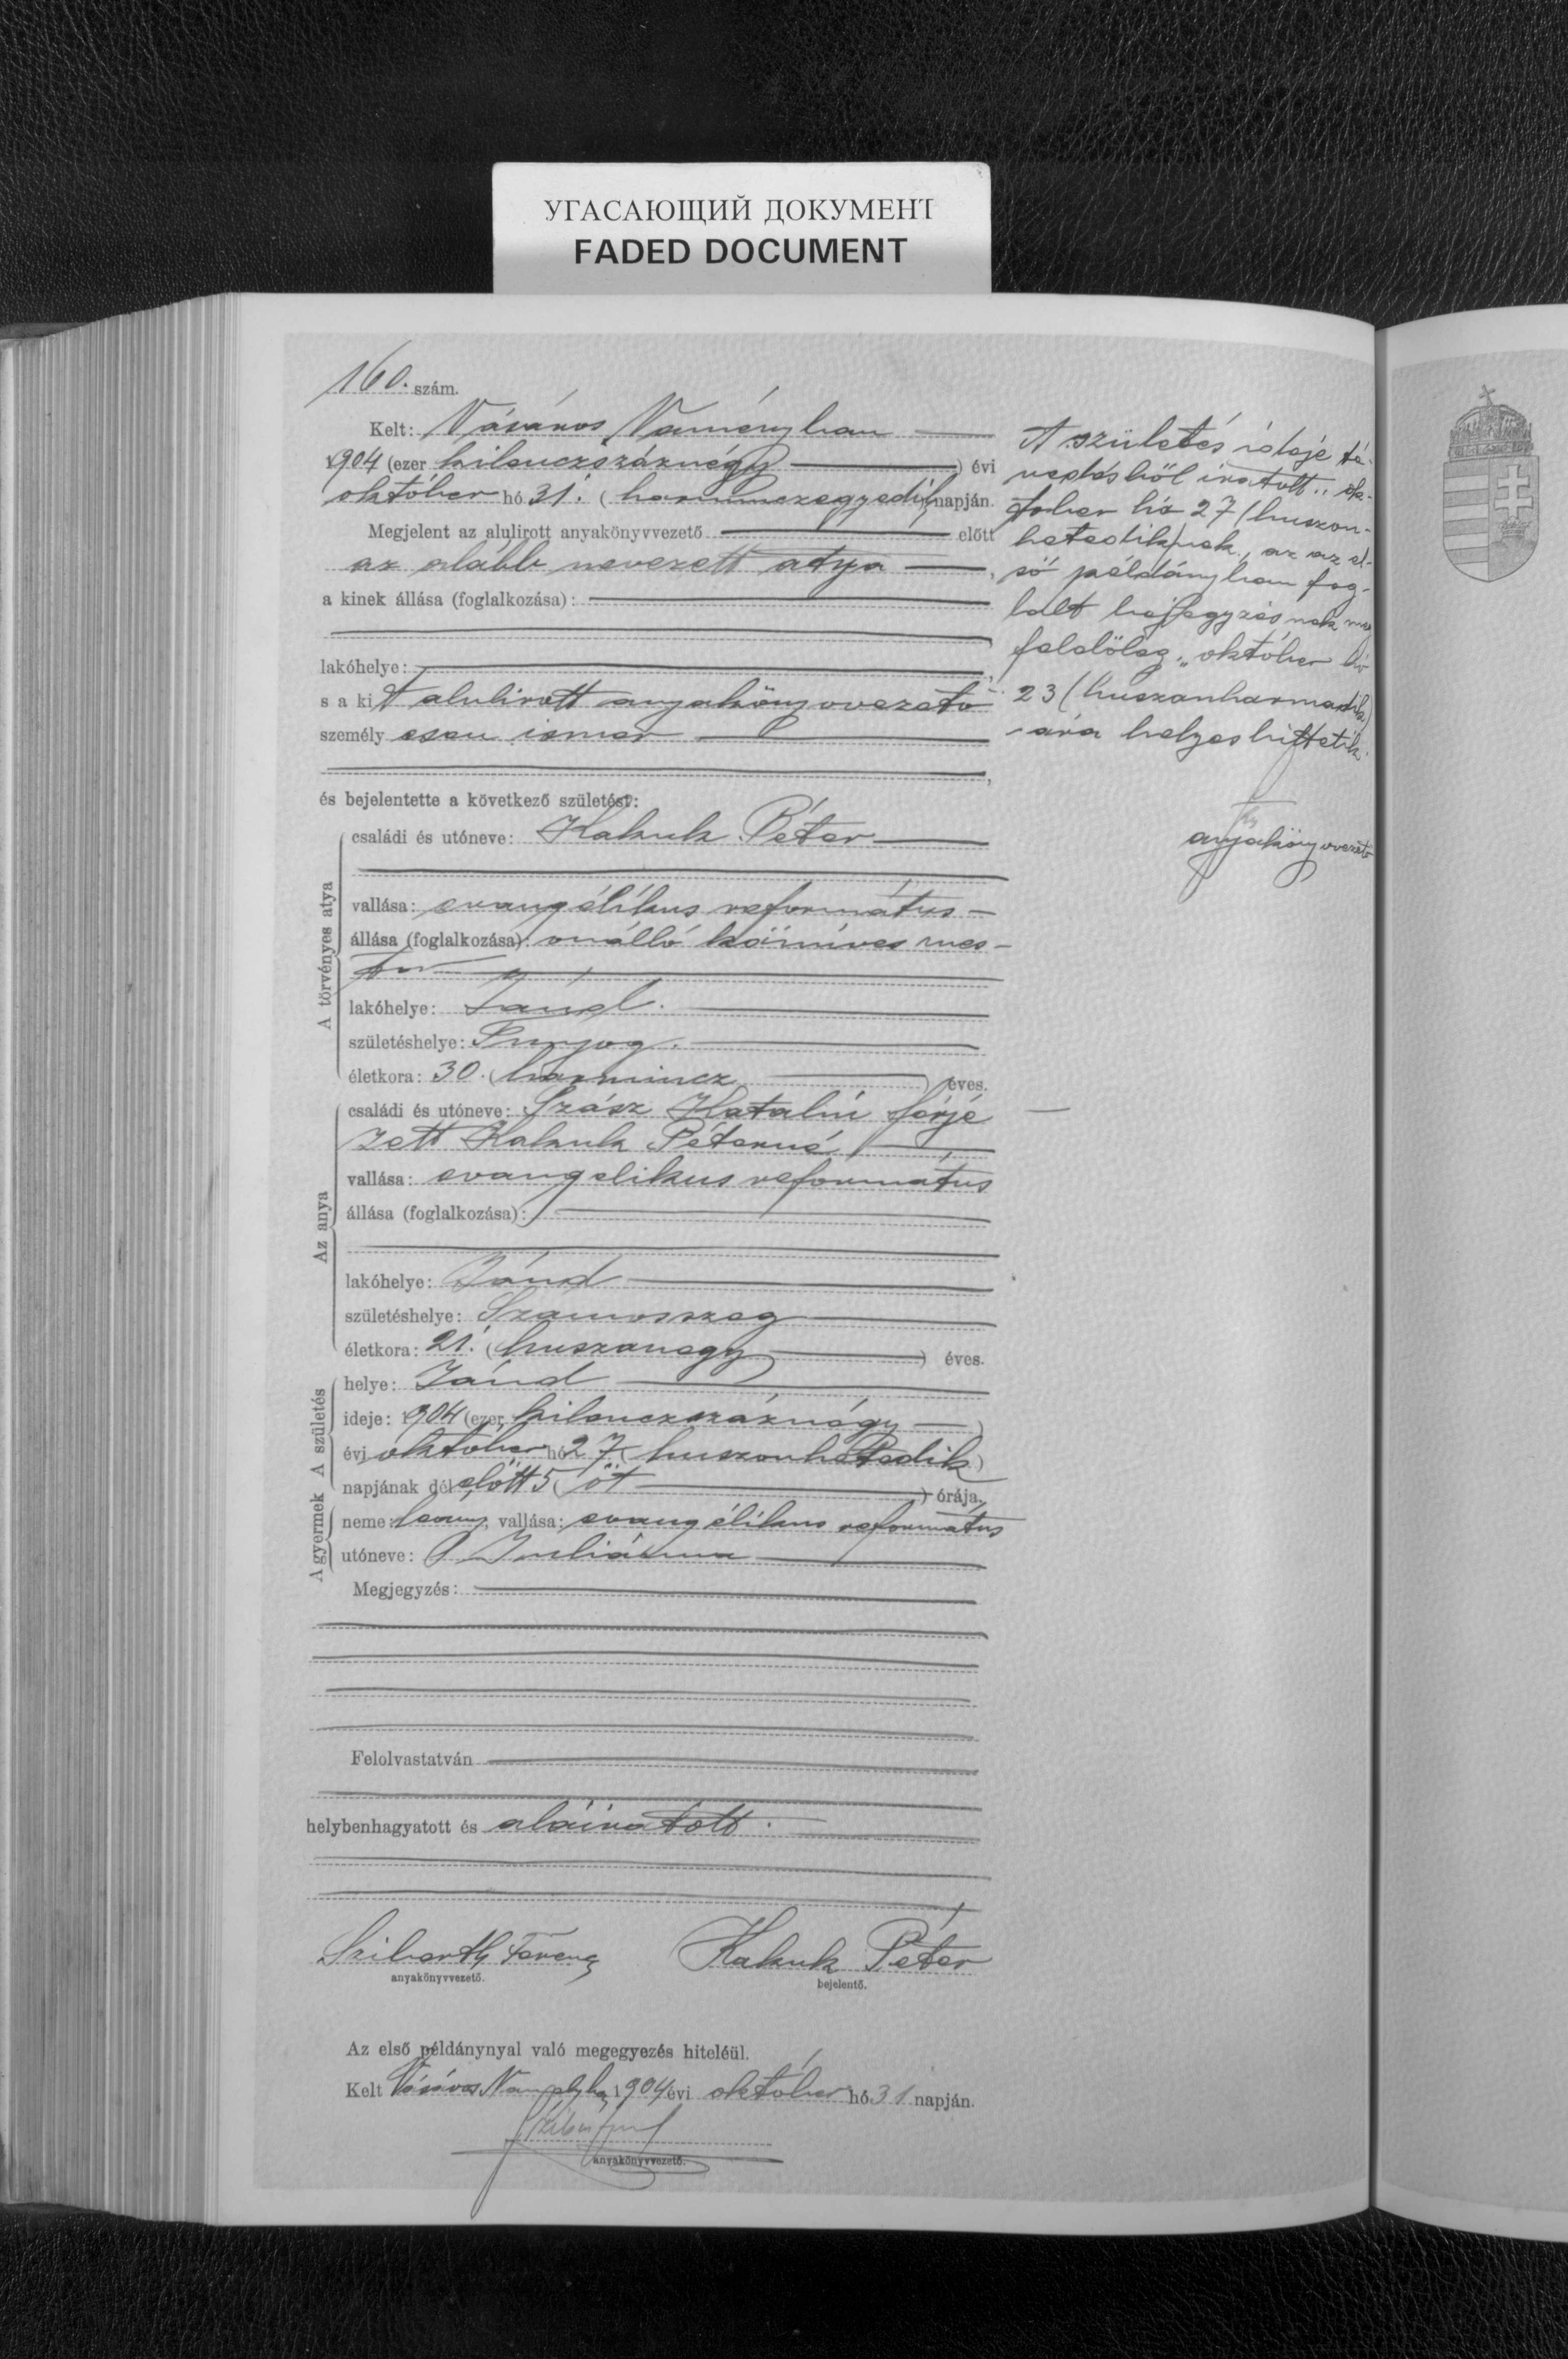 УГАСАЮЩИЙ ДОКУМЕНТ
FADED DOCUMENT
160. szám.
Kelt: Vásáros Naményban
1904 (ezer kilenczszáznégy) évi
október hó 31. (harminczegyedik) napján.
Megjelent az alulirott anyakönyvvezető előtt
az alább nevezett atya,
a kinek állása (foglalkozása):
lakóhelye:
s a kit alulirott anyakönyvvezető
személyesen ismer
és bejelentette a következő születést:
A törvényes atya
családi és utóneve: Kakuk Péter
vallása: evangélikus református
állása (foglalkozása): önálló kőmíves mes-
ter
lakóhelye: Jánd.
születéshelye: Tunyog.
életkora: 30. (harmincz) éves.
Az anya
családi és utóneve: Szász Katalin férje
zett Kakuk Péterné
vallása: evangelikus református
állása (foglalkozása):
lakóhelye: Jánd
születéshelye: Szamosszeg
életkora: 21. (huszonegy) éves.
A születés
helye: Jánd
ideje: 1904 (ezer kilenczszáznégy)
évi október hó 27 (huszonhetedik)
napjának délelőtt 5 (öt) órája.
A gyermek
neme: leány, vallása: evangélikus református
utóneve: Juliánna
Megjegyzés:
Felolvastatván
helybenhagyatott és aláiratott.
Ferencz
anyakönyvvezető.
Kakuk Péter
bejelentő.
Az első példánynyal való megegyezés hiteléül.
Kelt Vásáros Naményba 1904 évi október hó 31 napján.
anyakönyvvezető.
A születés ideje té-
vedésből iratott „ok-
tober hó 27 (huszon-
hetedik)nek, az az el-
ső példányban fog-
lalt bejegyzésnek meg
felelőleg „október hó
23 (huszonharmadik)
-ára helyesbittetik.
anyakönyvvezető